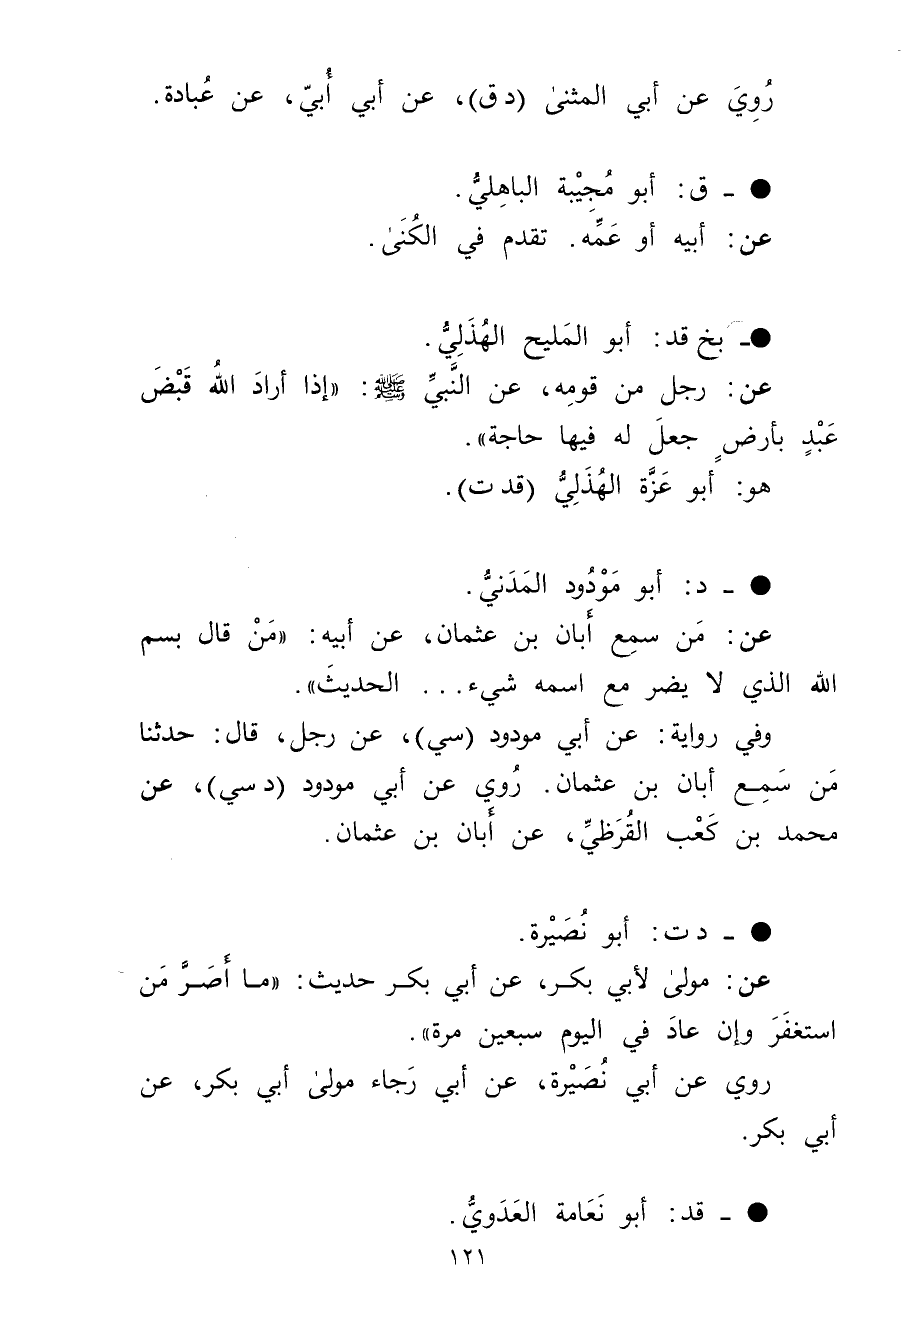 رُوِيَ عن أبي المثنىٰ (د ق)، عن أبي أُبيّ، عن عُبادة.
● ـ ق: أبو مُجِيْبة الباهِليُّ.
عن: أبيه أو عَمِّه. تقدم في الكُنَىٰ.
● ـ بخ قد: أبو المَليح الهُذَلِيُّ.
عن: رجل من قومِه، عن النَّبيِّ ﷺ: «إذا أرادَ اللهُ قَبْضَ
عَبْدٍ بأرضٍ جعلَ له فيها حاجة».
هو: أبو عَزَّة الهُذَلِيُّ (قد ت).
● ـ د: أبو مَوْدُود المَدَنيُّ.
عن: مَن سمِع أَبان بن عثمان، عن أبيه: «مَنْ قال بسم
الله الذي لا يضر مع اسمه شيء... الحديثَ».
وفي رواية: عن أبي مودود (سي)، عن رجل، قال: حدثنا
مَن سَمِع أبان بن عثمان. رُوي عن أبي مودود (د سي)، عن
محمد بن كَعْب القُرَظيِّ، عن أَبان بن عثمان.
● ـ د ت: أبو نُصَيْرة.
عن: مولىٰ لأبي بكر، عن أبي بكر حديث: «ما أَصَرَّ مَن
استغفَرَ وإن عادَ في اليوم سبعين مرة».
روي عن أبي نُصَيْرة، عن أبي رَجاء مولىٰ أبي بكر، عن
أبي بكر.
● ـ قد: أبو نَعَامة العَدَويُّ.
١٢١